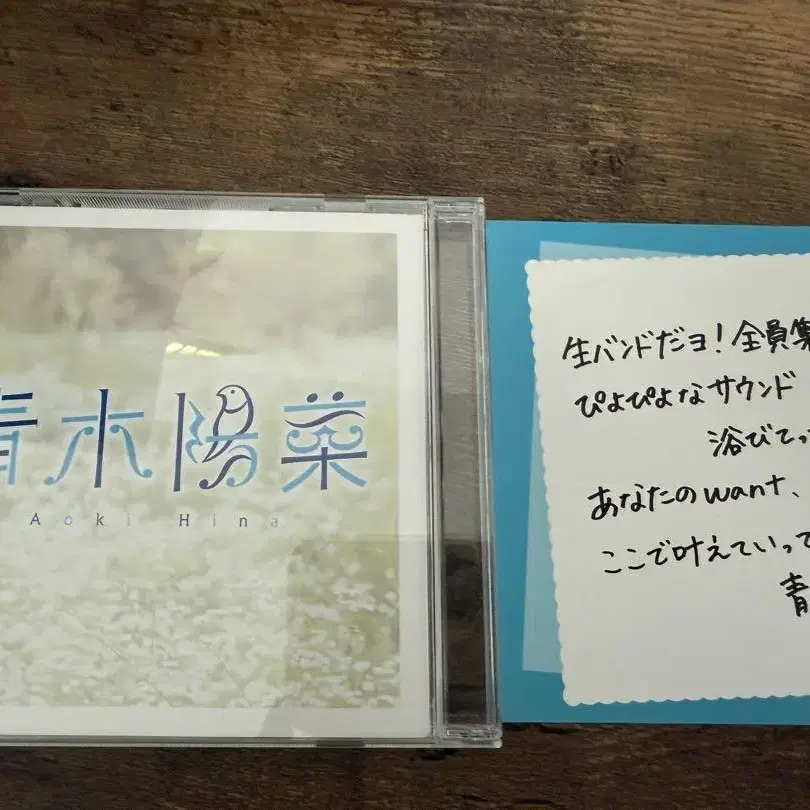 青木陽菜
Aoki Hina
生バンドだヨ！全員集
ぴよぴよなサウンド
浴びてっ
あなたのwant、
ここで叶えていって
青